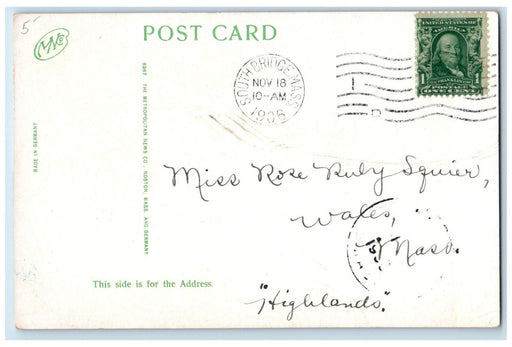 5
MNCo
POST CARD
UNITED STATES OF
AMERICA
FRANKLIN
1 1
POSTAGE
SOUTHBRIDGE MASS.
NOV 18
10-AM
1905
1
D
MADE IN GERMANY
THE METROPOLITAN NEWS CO. BOSTON, MASS. AND GERMANY
Miss Rose Ruby Squier,
Wales,
Mass.
This side is for the Address.
"Highlands."